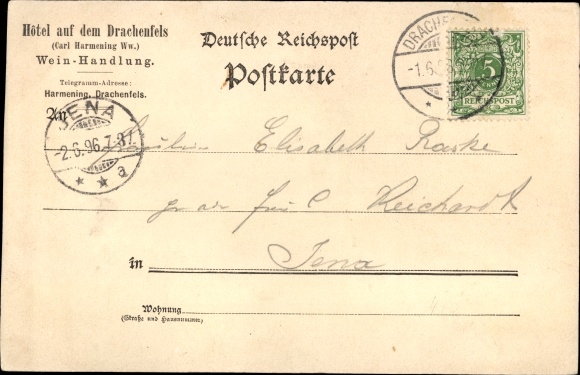 Hôtel auf dem Drachenfels
(Carl Harmening Ww.)
Wein-Handlung.
Telegramm-Adresse:
Harmening, Drachenfels.
Deutsche Reichspost
Postkarte
DRACHENF
-1.6.96
5
REICHSPOST
An
JENA
-2.6.96.7-8V.
* * a
Fräulein Elisabeth
Frau C Reichardt
in Jena
Wohnung
(Straße und Hausnummer)